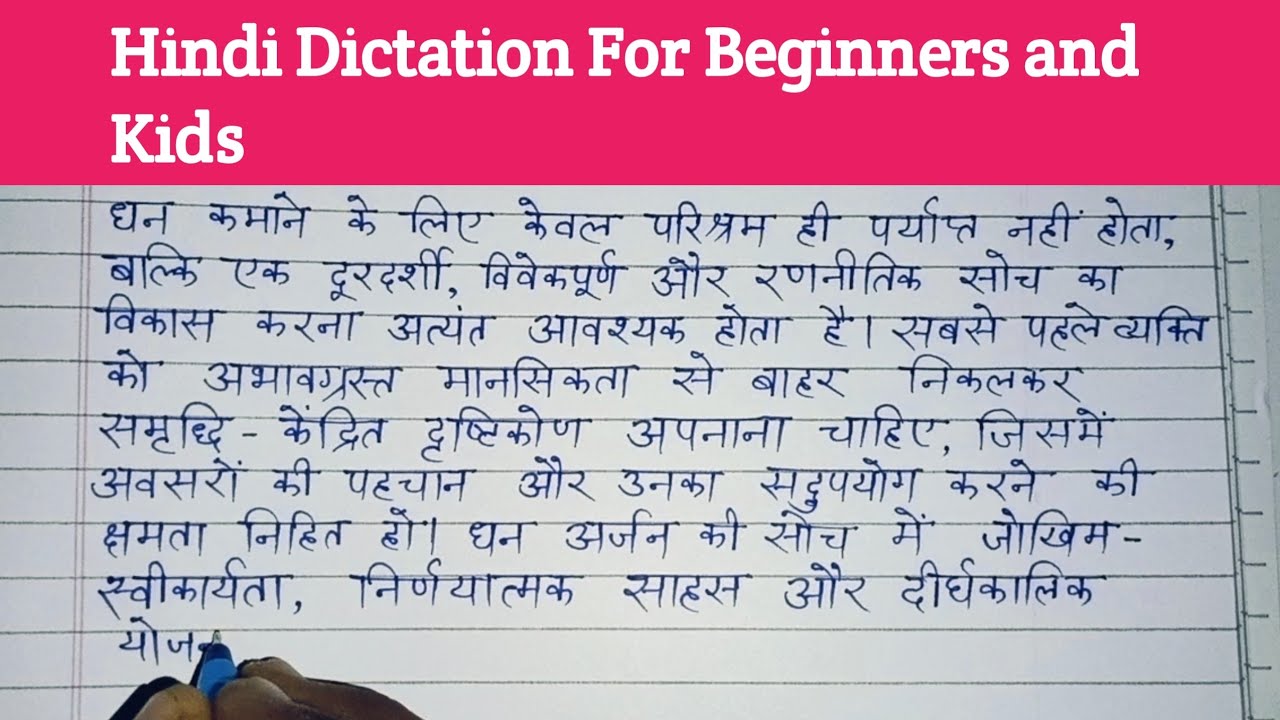 Hindi Dictation For Beginners and
Kids
धन कमाने के लिए केवल परिश्रम ही पर्याप्त नहीं होता,
बल्कि एक दूरदर्शी, विवेकपूर्ण और रणनीतिक सोच का
विकास करना अत्यंत आवश्यक होता है। सबसे पहले व्यक्ति
को अभावग्रस्त मानसिकता से बाहर निकलकर
समृद्धि - केंद्रित दृष्टिकोण अपनाना चाहिए, जिसमें
अवसरों की पहचान और उनका सदुपयोग करने की
क्षमता निहित हो। धन अर्जन की सोच में जोखिम-
स्वीकार्यता, निर्णयात्मक साहस और दीर्घकालिक